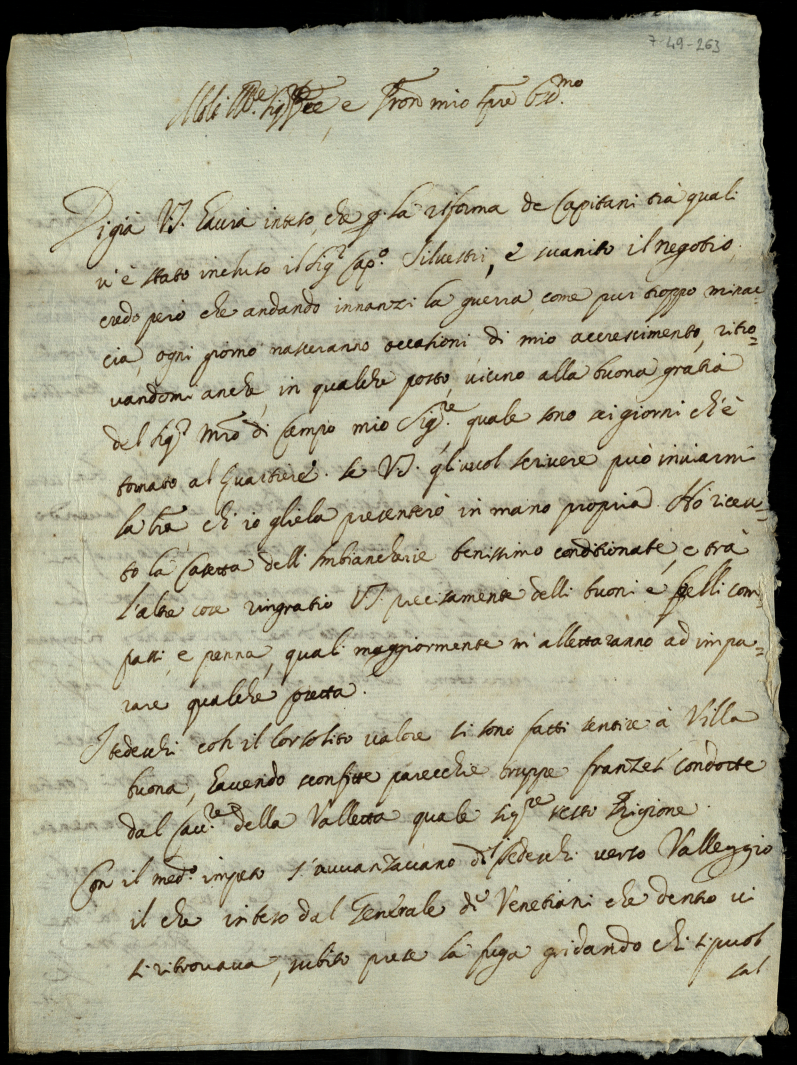 7-49-263
Molto Ill.re Sig.r e Pron mio
Digià V.S. haurà inteso, che p. la riforma de Capitani trà quali
v'è stato incluso il Sig.r Cap.o Silvestri, è suanito il negotio,
credo però che andando innanzi la guerra, come pur troppo minac-
cia, ogni giorno nasceranno occasioni di mio accrescimento, ritro=
uandomi anche, in qualche posto, uicino alla buona gratia
del Sig.r Mro di Campo mio Sig.re quale sono sei giorni ch'è
tornato al quartiere. Se V.S. gli uuol scriuere può inuiarmi
la lra ch'io gliela presenterò in mano propria. Hò riceu=
to la Casetta dell'imbiancherie benissimo conditionate, e trà
l'altre cose ringratio V.S. precisamente delli buoni e belli com=
passi, e penna, quali maggiormente m'alletteranno ad impa=
rare qualche cosetta.
I tedeschi con il lor solito ualore si sono fatti sentire à Villa
buona, hauendo sconfitte parecchie truppe franzesi condotte
dal Cau.re della Valletta quale sig.re restò prigione.
Con il med.o impeto s'auuanzauano di tedeschi uerso Valleggio
il che inteso dal Generale de Venetiani che dentro ui
si ritrouaua, subito prese la fuga gridando chi si puol
sal